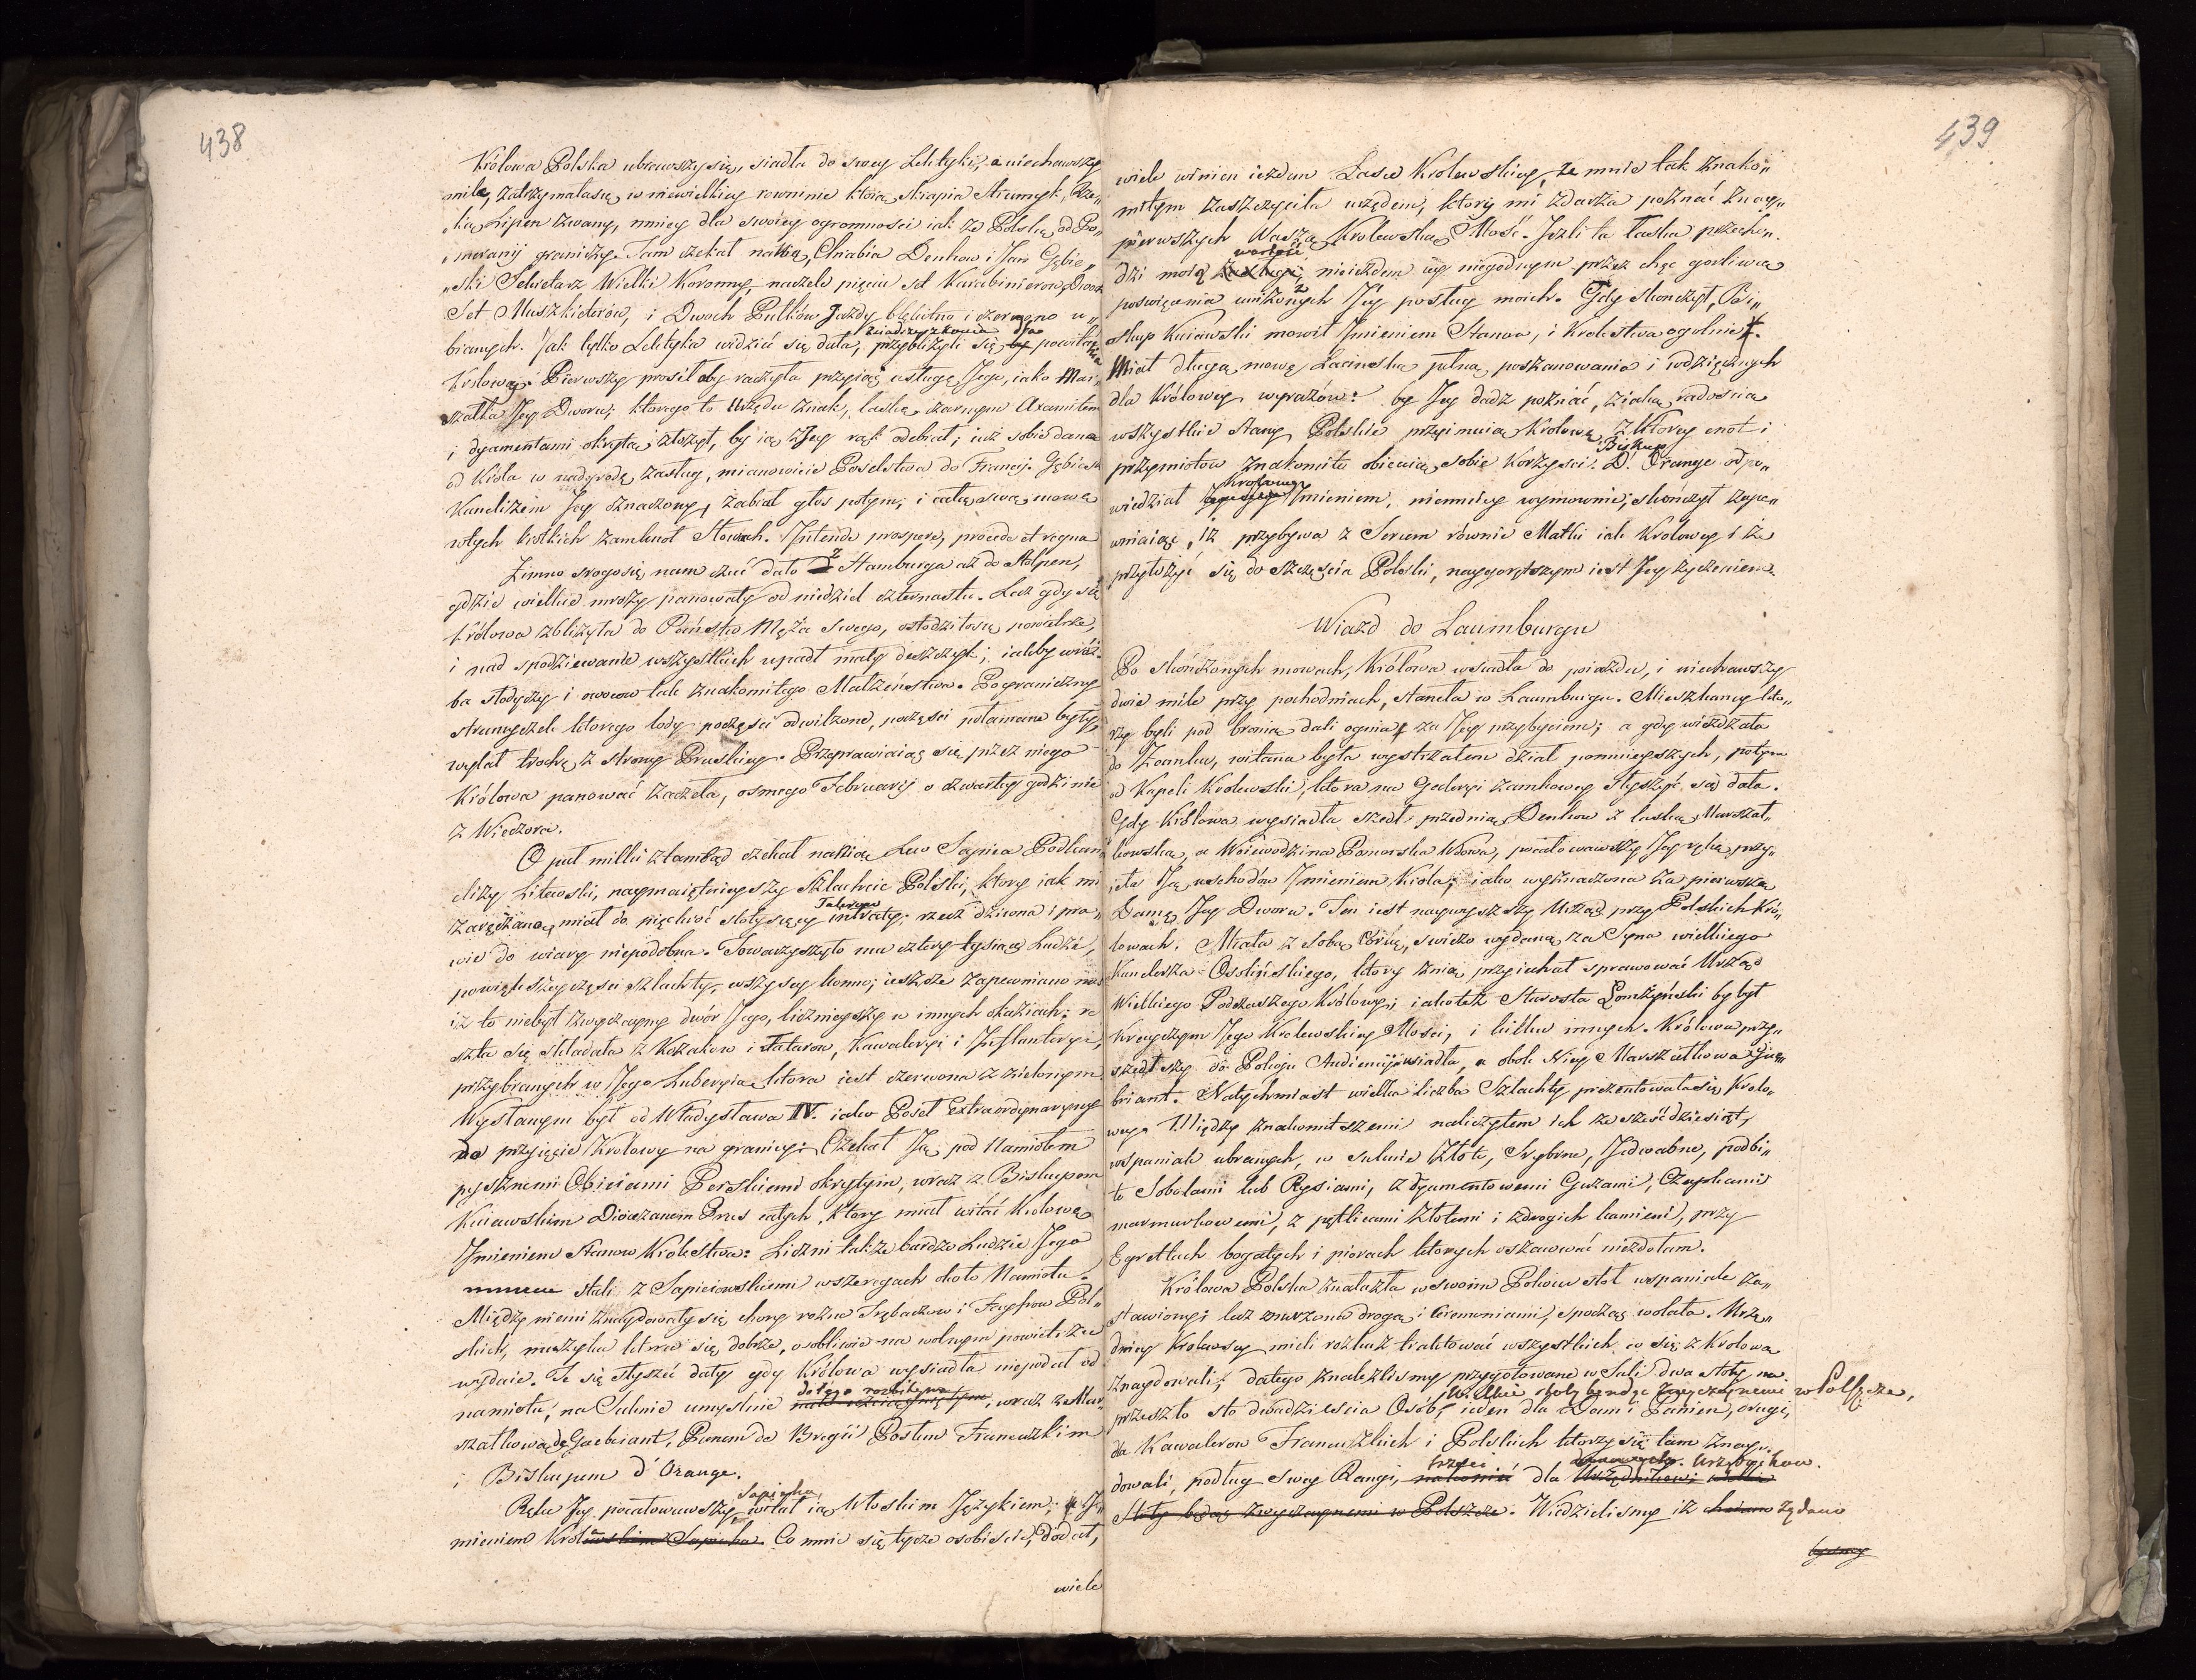 438
Królowa Polska ubrawszy się, siadła do swey Lektyki, a uiechawszy
milę, zatrzymała się, w niewielkiey rowninie którą skrapia Strumyk, Rze„
ką Lipen zwany, mniey dla swoiey ogromności iak że Polskę od Po„
meranij graniczy. Tam czekał na Nią, Chrabia Denhow i Jan Gębic„
„ski Sekretarz Wielki Koronny, na czele pięciu Set Karabinierow, Dwoch
Set Muszkieterów, i Dwoch Pułków Jazdy błękitno i czerwono u„
bianych. Jak tylko Lektyka widzieć się dała, przybliżyli się dla powitania
Królowy. Pierwszy prosił aby raczyła przyiąć usługę Jego, iako Mar„
szałka Jey Dworu; ktorego to Urzędu znak, laskę czarnym Axamitem
i dyamentami okrytą złożył, by ią z Jey rąk odebrał; iuż sobie daną
od Króla w nadgrodę zasług, mianowicie Poselstwa do Francij. Gębicki
Kanclerzem Jey oznaczony, zabrał głos potym; i całą swą mowę
w tych krotkich zamknoł Słowach. Intende prospere, procede et regna
Zimno srogo się nam czuć dało z Hamburga aż do Stolpen,
gdzie wielkie mrozy panowały od niedziel czternastu. Lecz gdy się
Królowa zbliżyła do Państw Męża swego, osłodziło się powietrze,
i nad spodziewanie wszystkich upadł mały deszczyk; iakby wróż„
ba słodyczy i owocow tak znakomitego Małżeństwa. Pograniczny
strumyczek ktorego lody poczęści odwilżone, poczęści połamane były,
wylał trochę z strony Pruskiey. Przeprawiaiąc się przez niego
Królowa panować zaczęła, osmego Februarij o czwartey godzinie
z Wieczora.
O puł milki ztamtąd czekał na Nią Lew Sapiea Podkan„
clizy Litewski, naymaiętnieyszy Szlachcic Polski, ktory iak mi
zaręczano, miał do pięciuset stotysięcy Talerow intraty; rzecz dziwna i pra„
wie do wiary niepodobna. Towarzyszyło mu cztery tysiące Ludzi,
powiększey części szlachty, wszyscy konno; ieszcze zapewniano nas
iż to niebył zwyczayny dwór Jego, licznieyszy w innych okaziach: re
szta się składała z Kozakow i Tatarow, Kawaleryi i Infanteryi,
przybranych w Jego Luberyią ktora iest czerwona z zielonym.
Wysłanym był od Władysława IV. iako Poseł Extraordynaryiny
na przyięcie Krolowy na granicy. Czekał Ją pod Namiotem
pysznemi Obiciami Perskiemi okrytym, wraz z Biskupem
Kuiawskim Diecezanem Prus całych, ktory miał witać Krolową
Imieniem Stanow Krolestwa: Liczni także bardzo Ludzie Jego
stali z Sapieiowskiemi w szeregach około Namiotu.
Między niemi znaydowały się chory rożne Trębaczow i Fayfrow Pol„
skich, muzyka ktora się dobrze, osobliwie na wolnym powietrzu
wydaie. Te się słyszeć dały gdy Królowa wysiadła niepodal od
namiotu, na Suknie umyslnie do tego rozbitym, wraz z Mar„
szałkową de Guebriant, Panem de Bregii Posłem Francuzkim
i Biskupem d'Orange.
Rękę Jey pocałowawszy Sapieha, witał ią Włoskim Językiem; Ji„
mieniem Krolewskim Sapieha. Co mnie się tycze osobiście, dodał,
wiele
439
wiele winien iezdem Łasce Krolewskiey, że mnie tak znako„
mitym zaszczyciła urzędem, ktory mi zdarza poznać z nay„
pierwszych Waszą Krolewską Mość. Jezli ta łaska przecho„
dzi moią wartość, nieiezdem iey niegodnym przez chęć gorliwą
poswięcenia uniżonych Jey posług moich. Gdy skończył, Bi„
skup Kuiawski mowił Imieniem Stanow, i Krolestwa ogolnie.
Miał długą mowę Łacinską pełną poszanowania i wdzięcznych
dla Królowey wyrazów: by Jey dadz poznać, z iaką radością
wszystkie Stany Polskie przyimuią Krolowę, z ktorey cnot i
przymiotow znakomite obiecuią sobie korzyści. Biskup D'Orange odpo„
wiedział Krolowey Imieniem, niemniey wymownie; skończył zape„
wniaiąc, iż przybywa z Sercem równie Matki iak Krolowey i że
przyłożyć się do szczęścia Polski, naygorętszym iest Jey życzeniem.
Wiazd do Laumburga
Po skończonych mowach, Królowa wsiadła do poiazdu, i uiechawszy
dwie mile przy pochodniach, stanęła w Laumburgu. Mieszkancy kto„
rzy byli pod bronią dali ognia za Jey przybyciem; a gdy wieżdżała
do Zamku, witana była wystrzałem dział pomnieyszych, potym
od Kapeli Krolewski, ktora na Galeryi zamkowey słyszyć się dała.
Gdy Królowa wysiadła szedł przed nią Denhow z laską Marszał„
kowską, a Woiewodzina Pomorska Wdowa, pocałowawszy Jey rękę przy„
ięła Ją u schodów Imieniem Krola; iako wyznaczona za pierwszą
Damę Jey Dworu. Ten iest naywyższy Urząd przy Polskich Kró„
lowach. Miała z sobą Córkę, swieżo wydaną za Syna wielkiego
Kanclerza Osolińskiego, ktory z nią przyiechał sprawować Urząd
Wielkiego Podczaszego Królowy; iakoteż Starosta Łomżyński by był
Krayczym Jego Krolewskiey Mości, i kilku innych. Królowa przy„
szedłszy do Pokoju Audiencij usiadła, a obok Niey Marszałkowa Gue„
briant. Natychmiast wielka liczba Szlachty prezentowała się Krolo„
wy. Między znakomitszemi naliczyłem ich ze sześćdziesiąt,
wspaniale ubranych, w suknie Złote, Srybrne, Jedwabne, podbi„
te Sobolami lub Rysiami, z dyamentowemi Guzami, Czapkami
marmurkowemi, z pętlicami Złotemi i z drogich kamieni, przy
Egretkach bogatych i piorach ktorych oszacować niezdołam.
Królowa Polska znalazła w swoim Pokoiu stoł wspaniale za„
stawiony; lecz znurzona drogą i Ceremoniami, spocząć wolała. Urzę„
dnicy Krolewscy mieli rozkaz traktować wszystkich co się z Krolową
znaydowali; datego znalezlismy przygotowane w Sali dwa stoły na
przeszło sto dwadzieścia Osób; Wielkie stoły będąc zwyczaynemi w Polszcze,
ieden dla Dam i Panien, drugi,
dla Kawalerow Francuzkich i Polskich ktorzy się tam znay„
dowali, podług swey Rangi, trzeci dla Urzędnikow.
Stoły będąc zwyczaynemi w Polszcze. Wiedzielismy iż żądano